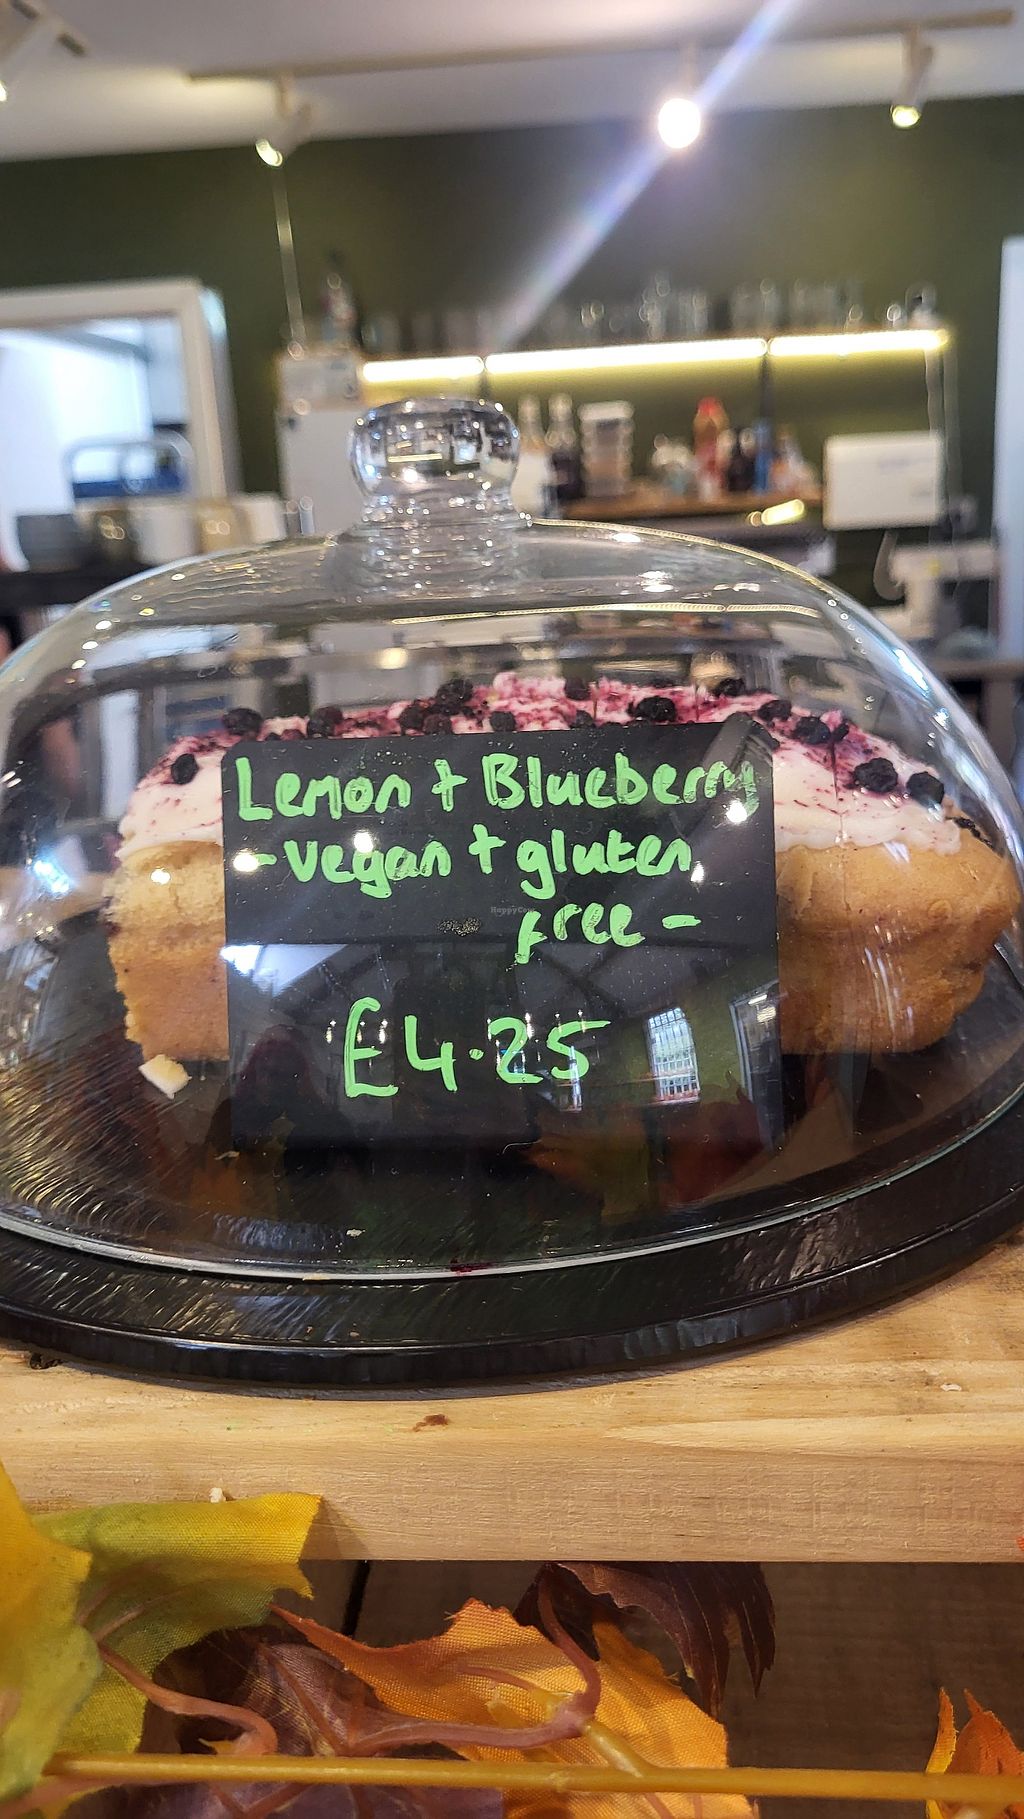 Lemon + Blueberry
- vegan + gluten
free -
£4.25
HappyCow